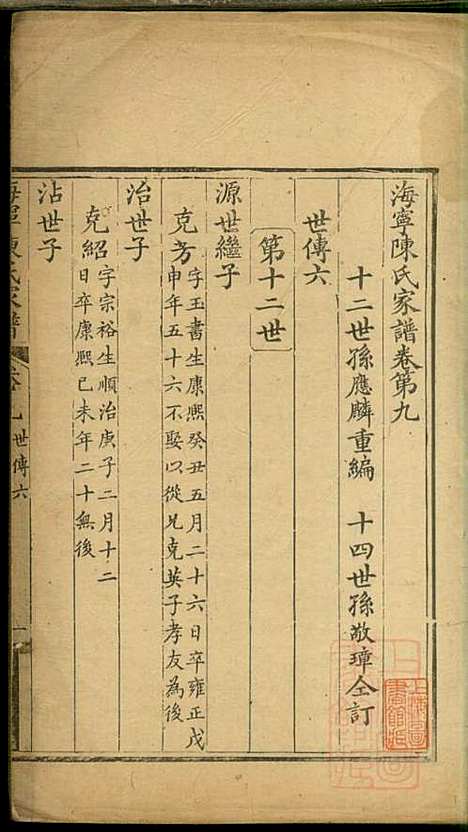 海寧陳氏家譜卷第九
十二世孫應麟重編 十四世孫敬璋仝訂
世傳六
第十二世
源世繼子
克芳
字玉書生康熙癸丑五月二十六日卒雍正戊
申年五十六不娶以從兄克英子孝友為後
治世子
克紹
字宗裕生順治庚子二月十二
日卒康熙己未年二十無後
沾世子
海寧陳氏家譜 卷九 世傳六 一